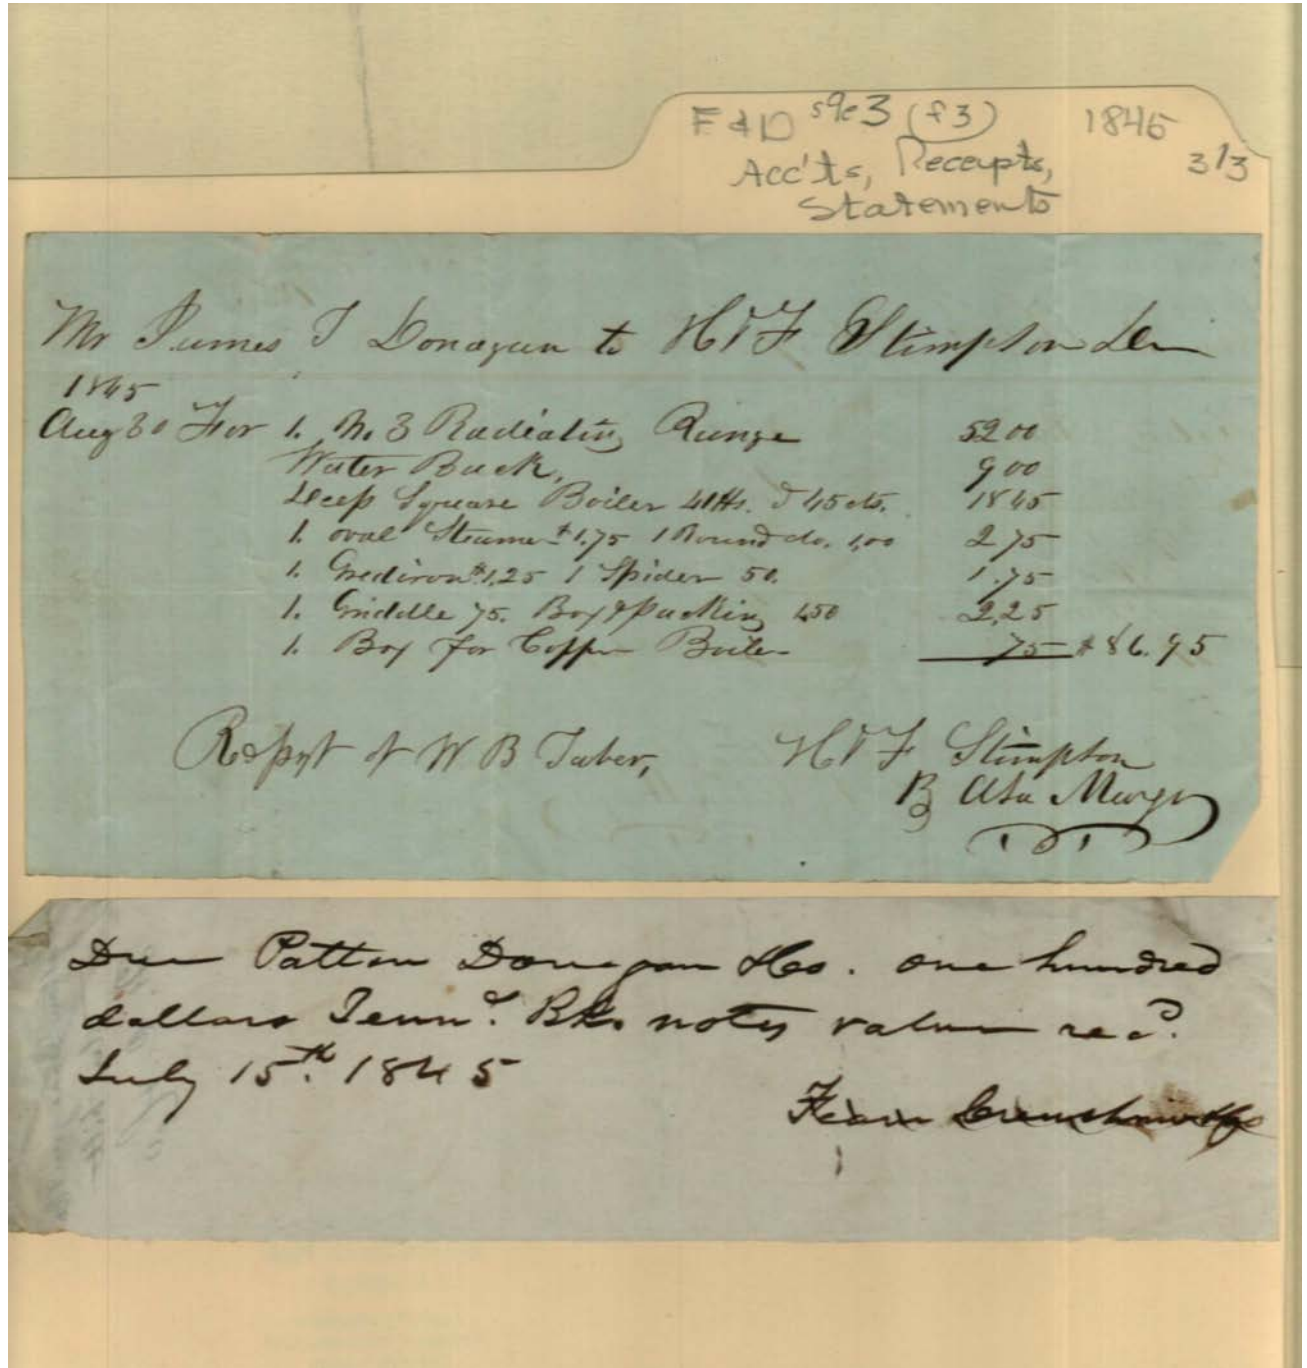 F & D s9e3 (f3) 1845
3/3
Acc'ts, Receipts,
Statements
Mr James J Donagan to H & F Stimpson Dr
1845
Aug 30 For 1. No. 3 Radiating Range 52 00
Water Back, 9 00
Deep Square Boiler 41 lbs. 45 cts. 18 45
1. oval Steamer $1.75 1 Round do. 1,00 2 75
1. Grediron $1.25 1 Spider 50. 1.75
1. Griddle 75. Box & Packing 1,50 2,25
1. Box for Copper Boiler 75 $86.95
Rec pyt of W B Taber, H & F Stimpson
By Asa
Due Patton Donegan & Co. one hundred
dollars Tenne. Bk. notes value recd.
July 15th. 1845
Fearn Crenshaw & Co